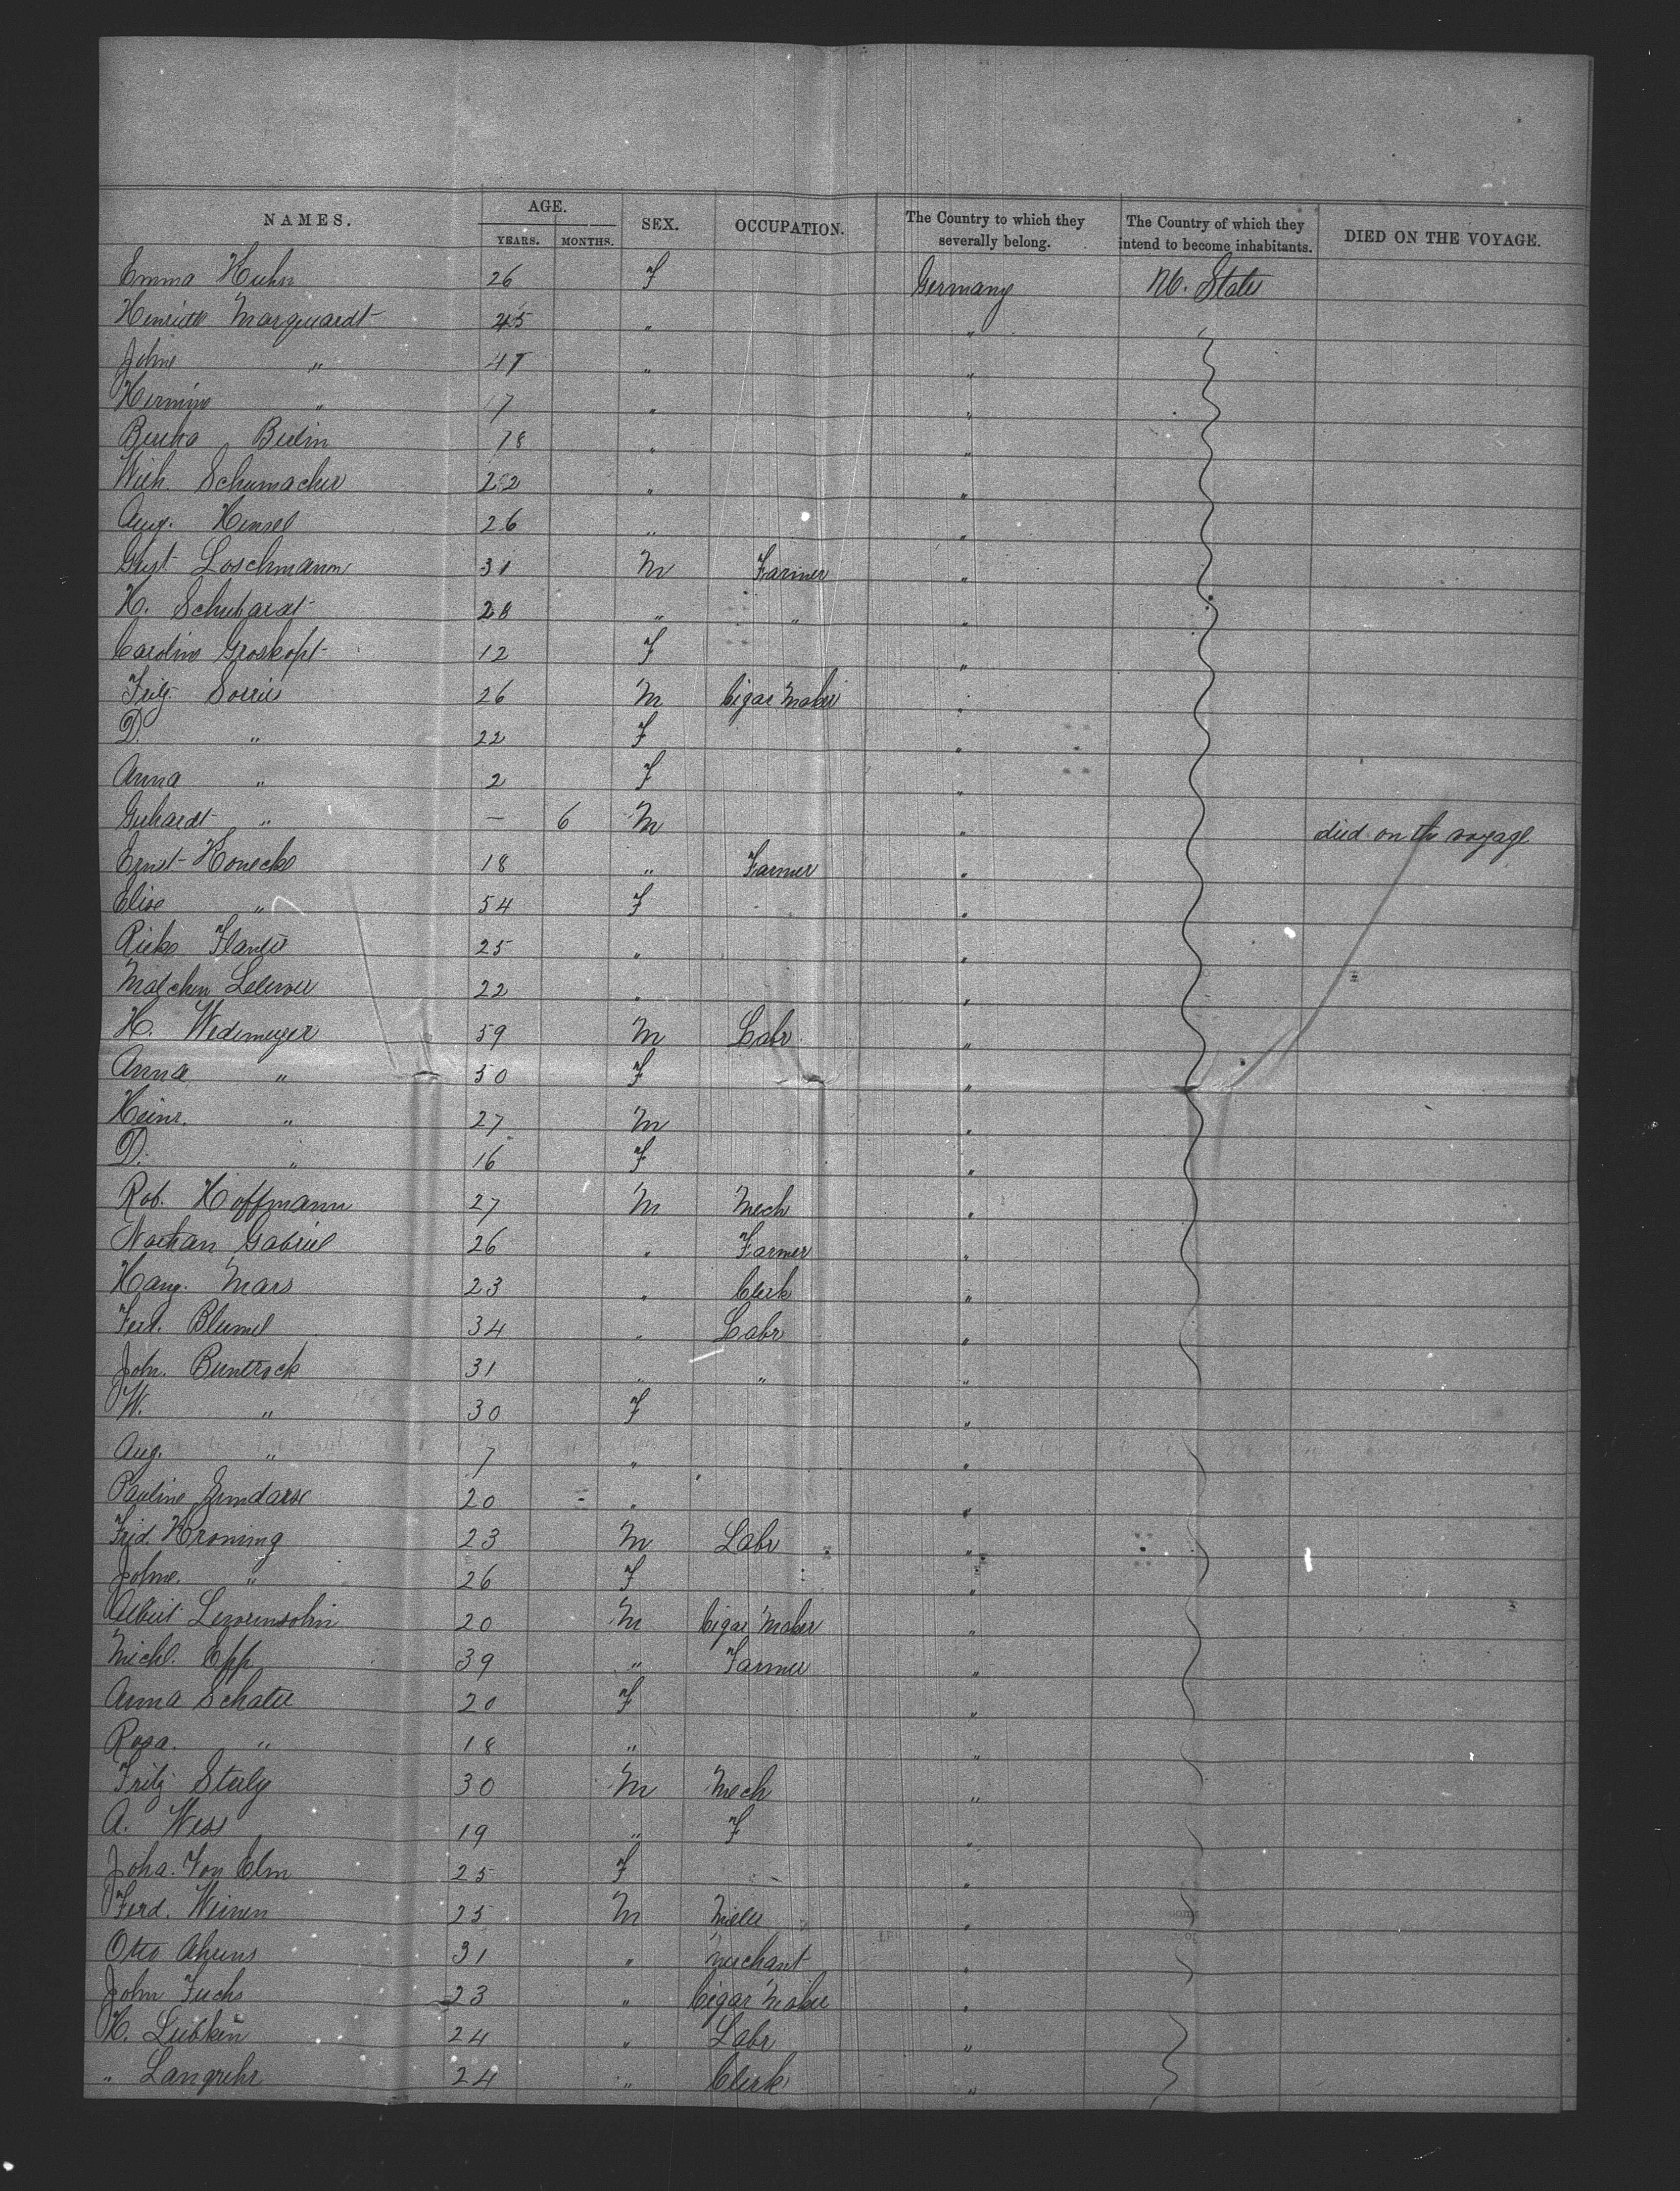 NAMES. AGE. SEX. OCCUPATION. The Country to which they severally belong. The Country of which they intend to become inhabitants. DIED ON THE VOYAGE.
YEARS. MONTHS.
Emma Huhn 26 F Germany Ud. States
Henriette Marquardt 45 " "
Johne " 47 " "
Hermine " 17 " "
Bertha 18 " "
Wilh. Schumacher 22 " "
Aug. Hensel 26 " "
Gust. Loschmann 31 M Farmer "
H. Schubardt 28 " " "
Caroline Groskopf 12 F "
26 M Cigar Maker "
D. " 22 F "
Anna " 2 F "
Gerhardt " — 6 M " died on the voyage
Ernst Honecke 18 " Farmer "
Elise " 54 F "
Rieke 25 " "
Malchen 22 " "
H. Wedemeyer 59 M Labr "
Anna " 50 F "
Heinr. " 27 M "
D. " 16 F "
Rob. Hoffmann 27 M Mech "
Nathan Gabriel 26 " Farmer "
Mars 23 " Clerk "
Ferd. Blumel 34 " Labr "
John. Buntrock 31 " " "
W. " 30 F "
Aug. " 7 " "
Pauline 20 " "
Frid. Kroning 23 M Labr "
Johne. " 26 F "
Albert Lewensohn 20 M Cigar Maker "
Michl. Epp 39 " Farmer "
Anna Schater 20 F "
Rosa. " 18 " "
Fritz 30 M Mech "
A. Wess 19 " F "
Joha. Von Elm 25 F - "
Ferd. Weinen 25 M "
Otto Ahrens 31 " Merchant "
John Fuchs 23 " Cigar Maker "
H. Lubken 24 " Labr "
" Langrehr 24 " Clerk "